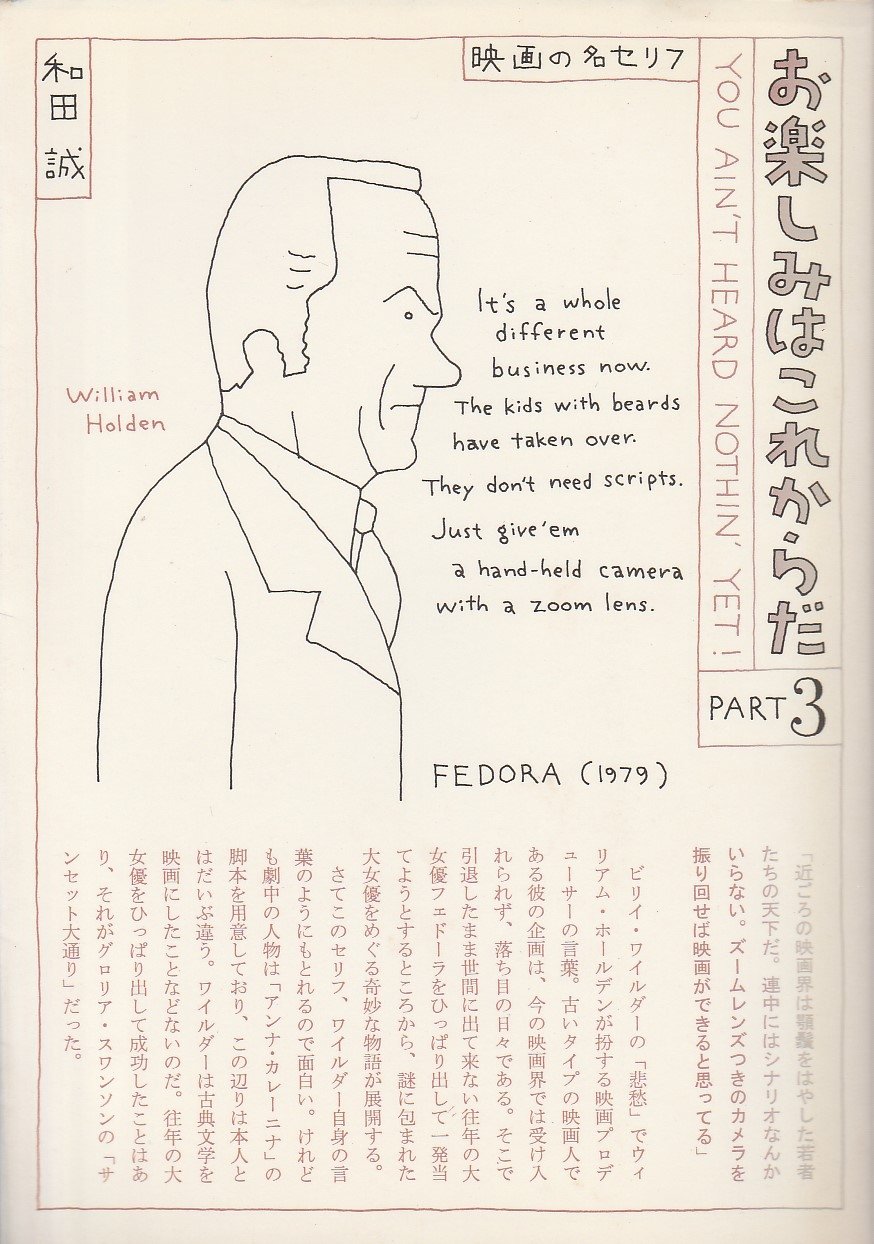 お楽しみはこれからだ
YOU AIN'T HEARD NOTHIN' YET!
PART3
映画の名セリフ
和田 誠
William
Holden
It's a whole
different
business now.
The kids with beards
have taken over.
They don't need scripts.
Just give 'em
a hand-held camera
with a zoom lens.
FEDORA (1979)
「近ごろの映画界は顎鬚をはやした若者
たちの天下だ。連中にはシナリオなんか
いらない。ズームレンズつきのカメラを
振り回せば映画ができると思ってる」
ビリイ・ワイルダーの「悲愁」でウィ
リアム・ホールデンが扮する映画プロデ
ューサーの言葉。古いタイプの映画人で
ある彼の企画は、今の映画界では受け入
れられず、落ち目の日々である。そこで
引退したまま世間に出て来ない往年の大
女優フェドーラをひっぱり出して一発当
てようとするところから、謎に包まれた
大女優をめぐる奇妙な物語が展開する。
さてこのセリフ、ワイルダー自身の言
葉のようにもとれるので面白い。けれど
も劇中の人物は「アンナ・カレーニナ」の
脚本を用意しており、この辺りは本人と
はだいぶ違う。ワイルダーは古典文学を
映画にしたことなどないのだ。往年の大
女優をひっぱり出して成功したことはあ
り、それがグロリア・スワンソンの「サ
ンセット大通り」だった。